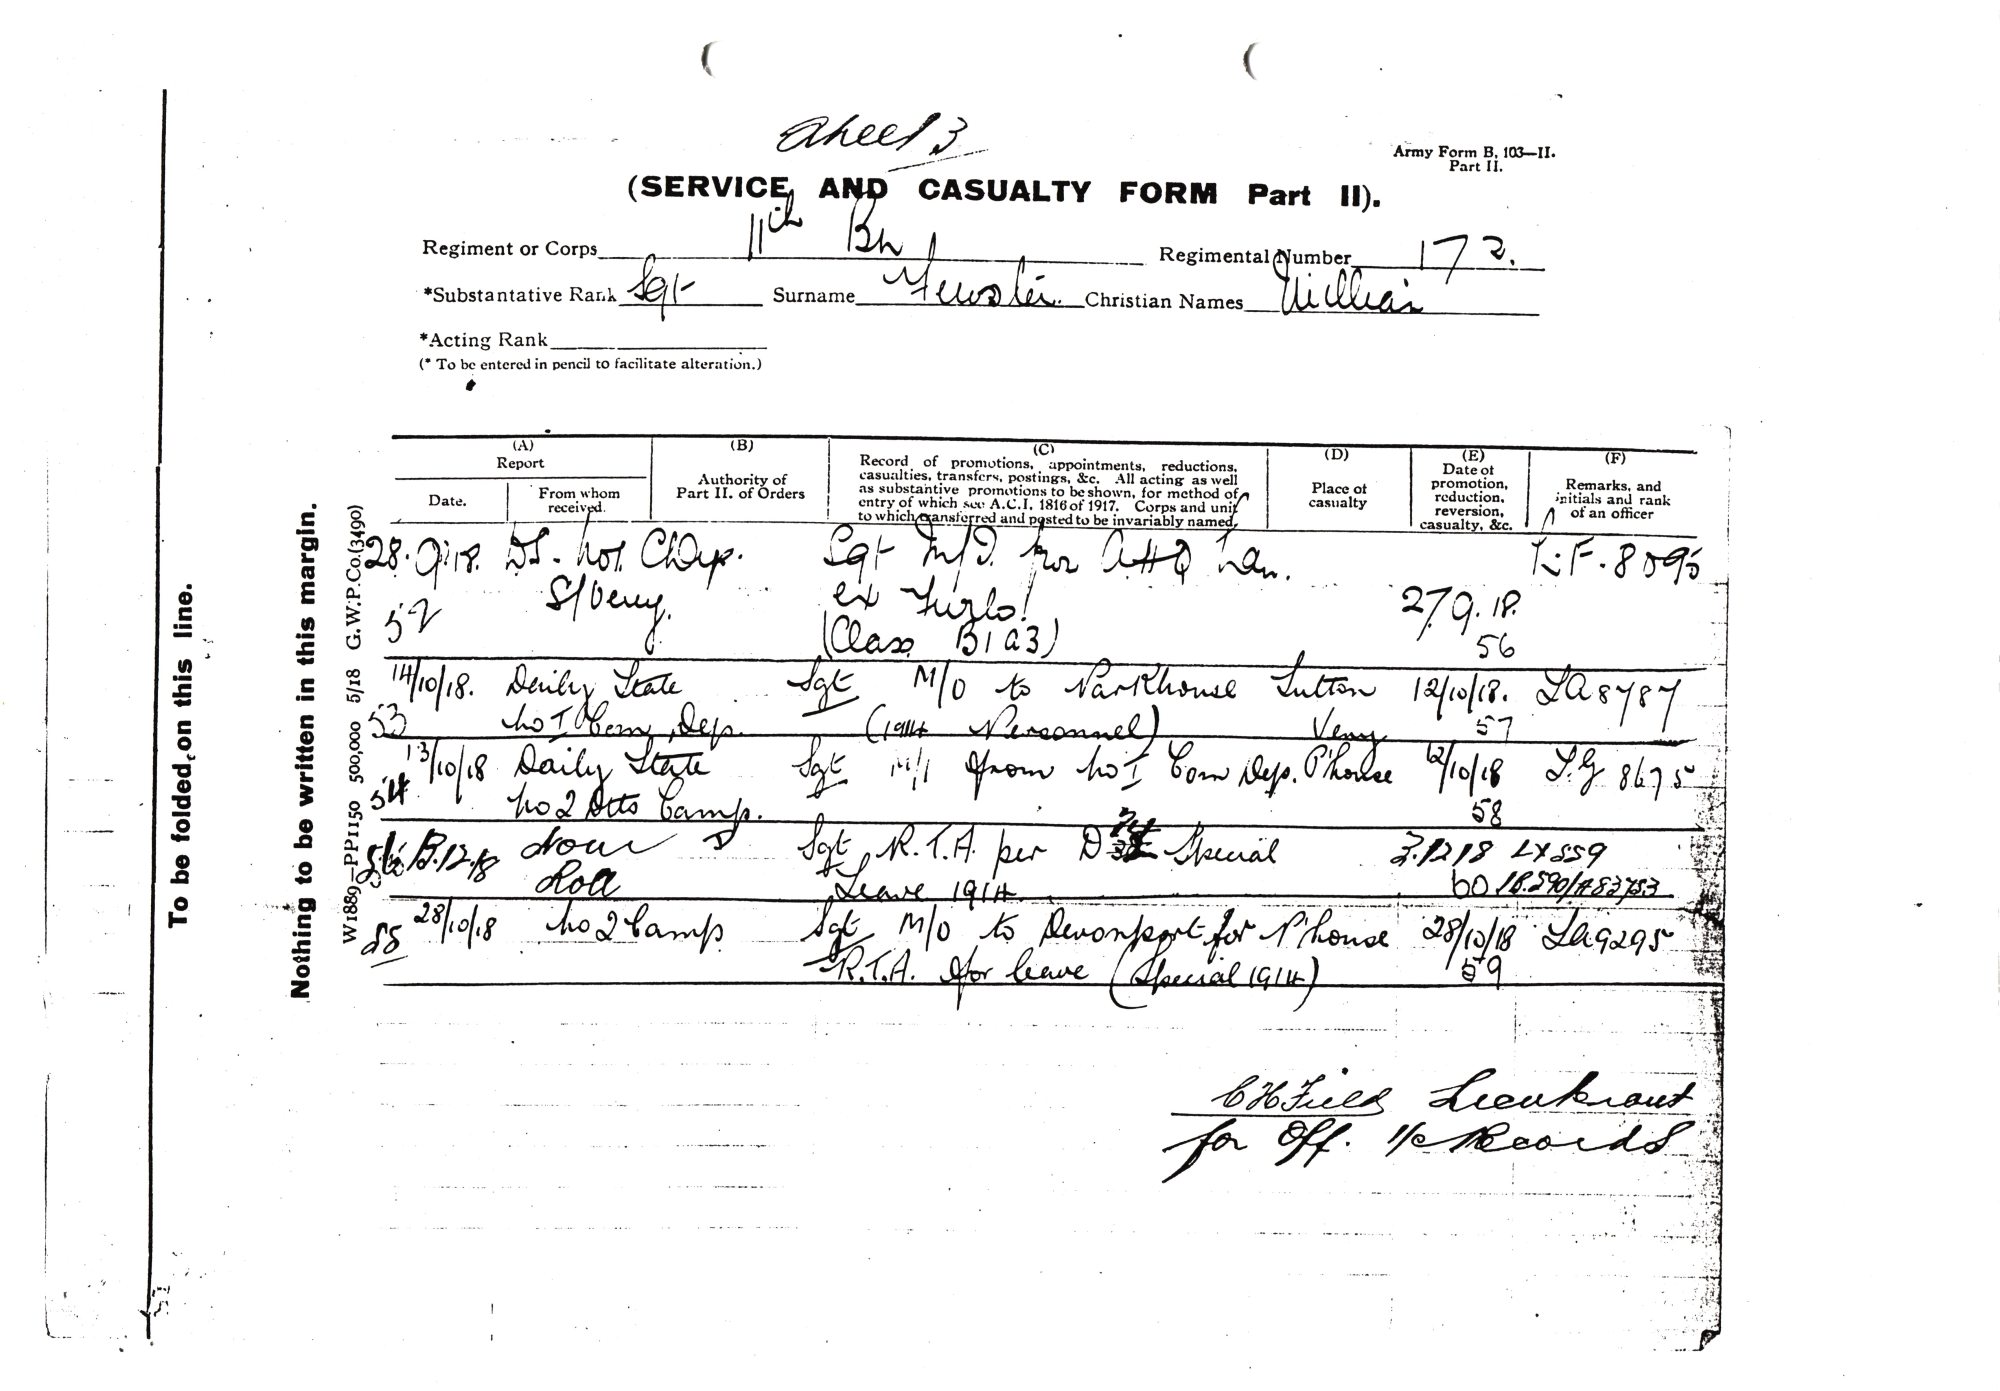 Sheet 3
Army Form B, 103—II.
Part II.
(SERVICE AND CASUALTY FORM Part II).
Regiment or Corps 11th Bn Regimental Number 172.
*Substantative Rank Sgt Surname Fewster Christian Names William
*Acting Rank
(* To be entered in pencil to facilitate alteration.)
To be folded on this line.
Nothing to be written in this margin.
W1889—PP1150 500,000 5/18 G.W.P.Co.(3490)
(A) (B) (C) (D) (E) (F)
Report
Date. From whom received.
Authority of Part II. of Orders
Record of promotions, appointments, reductions,
casualties, transfers, postings, &c. All acting as well
as substantive promotions to be shown, for method of
entry of which see A.C.I. 1816 of 1917. Corps and unit
to which transferred and posted to be invariably named.
Place of casualty
Date of promotion, reduction, reversion, casualty, &c.
Remarks, and initials and rank of an officer
28.9.18. DS. No1 C Dep. Sgt M/I from AHQ Lon. 8595
52 S/Veny. ex Furlo! 27.9.18.
(Class B1A3) 56
14/10/18. Daily State Sgt M/O to Parkhouse Sutton 12/10/18. LA8787
53 No I Com Dep. (1914 Personnel) Veny 57
13/10/18 Daily State Sgt M/I from No I Com Dep. P'house 12/10/18 LG 8675
54 No 2 Camp. 58
12.18 Nom Sgt R.T.A. per Special 3.12.18 LX 559
Roll Leave 1914. 60
55 28/10/18 No 2 Camp Sgt M/O to Devonport for P'house 28/10/18 LA9295
R.T.A. for leave (Special 1914) 59
C H Field Lieutenant
for Off. i/c Records